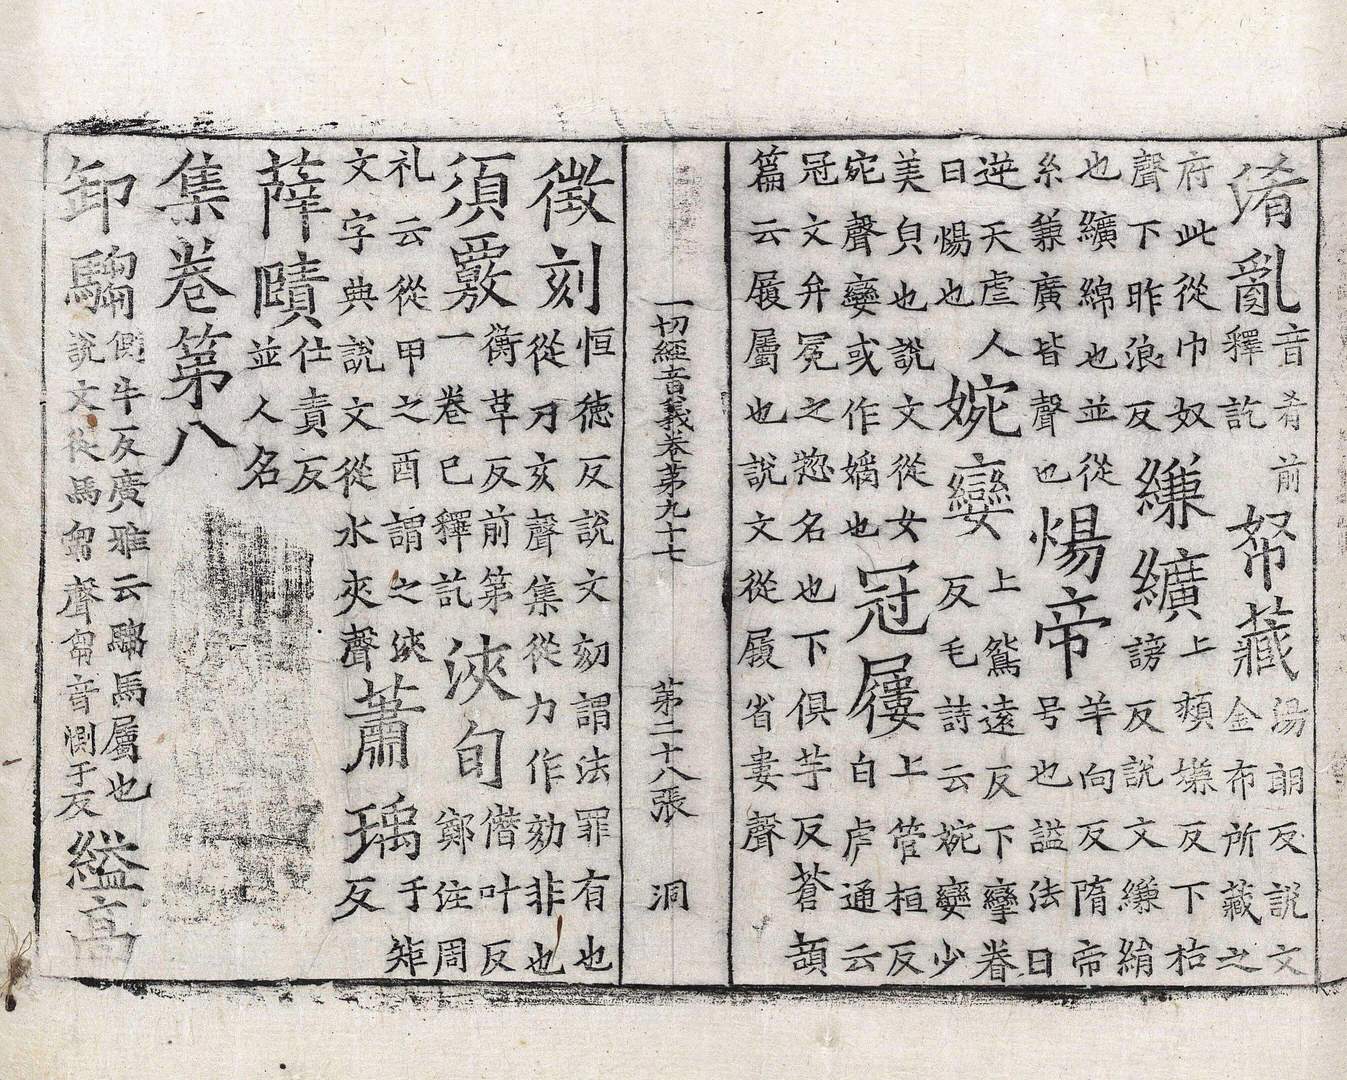 淆亂音肴前釋訖帑藏湯朗反說文金布所藏之
府此從巾奴聲下昨浪反縑纊上頰嫌反下枯謗反說文縑絹
也纊綿也並從糸兼廣皆聲也煬帝羊向反隋帝号也謚法曰
逆天虐人曰煬也婉孌上鴛遠反下攣眷反毛詩云婉孌少
美皃也說文從女宛聲孌或作嫡也冠屨上管桓反白虎通云
冠文弁冕之惣名也下俱芋反蒼頡篇云屨屬也說文從屨省婁聲
一切經音義卷第九十七 第二十八張 洞
徵刻恒德反說文劾謂法罪有也從刀亥聲集從力作劾非也
須覈衡革反前第一卷已釋訖浹旬僭叶反鄭注周
礼云從甲之酉謂之浹文字典說文從水夾聲蕭瑀于矩反
薛賾仕責反並人名
集卷第八
卸騶側牛反廣雅云騶馬屬也說文從馬芻聲芻音惻于反縊高